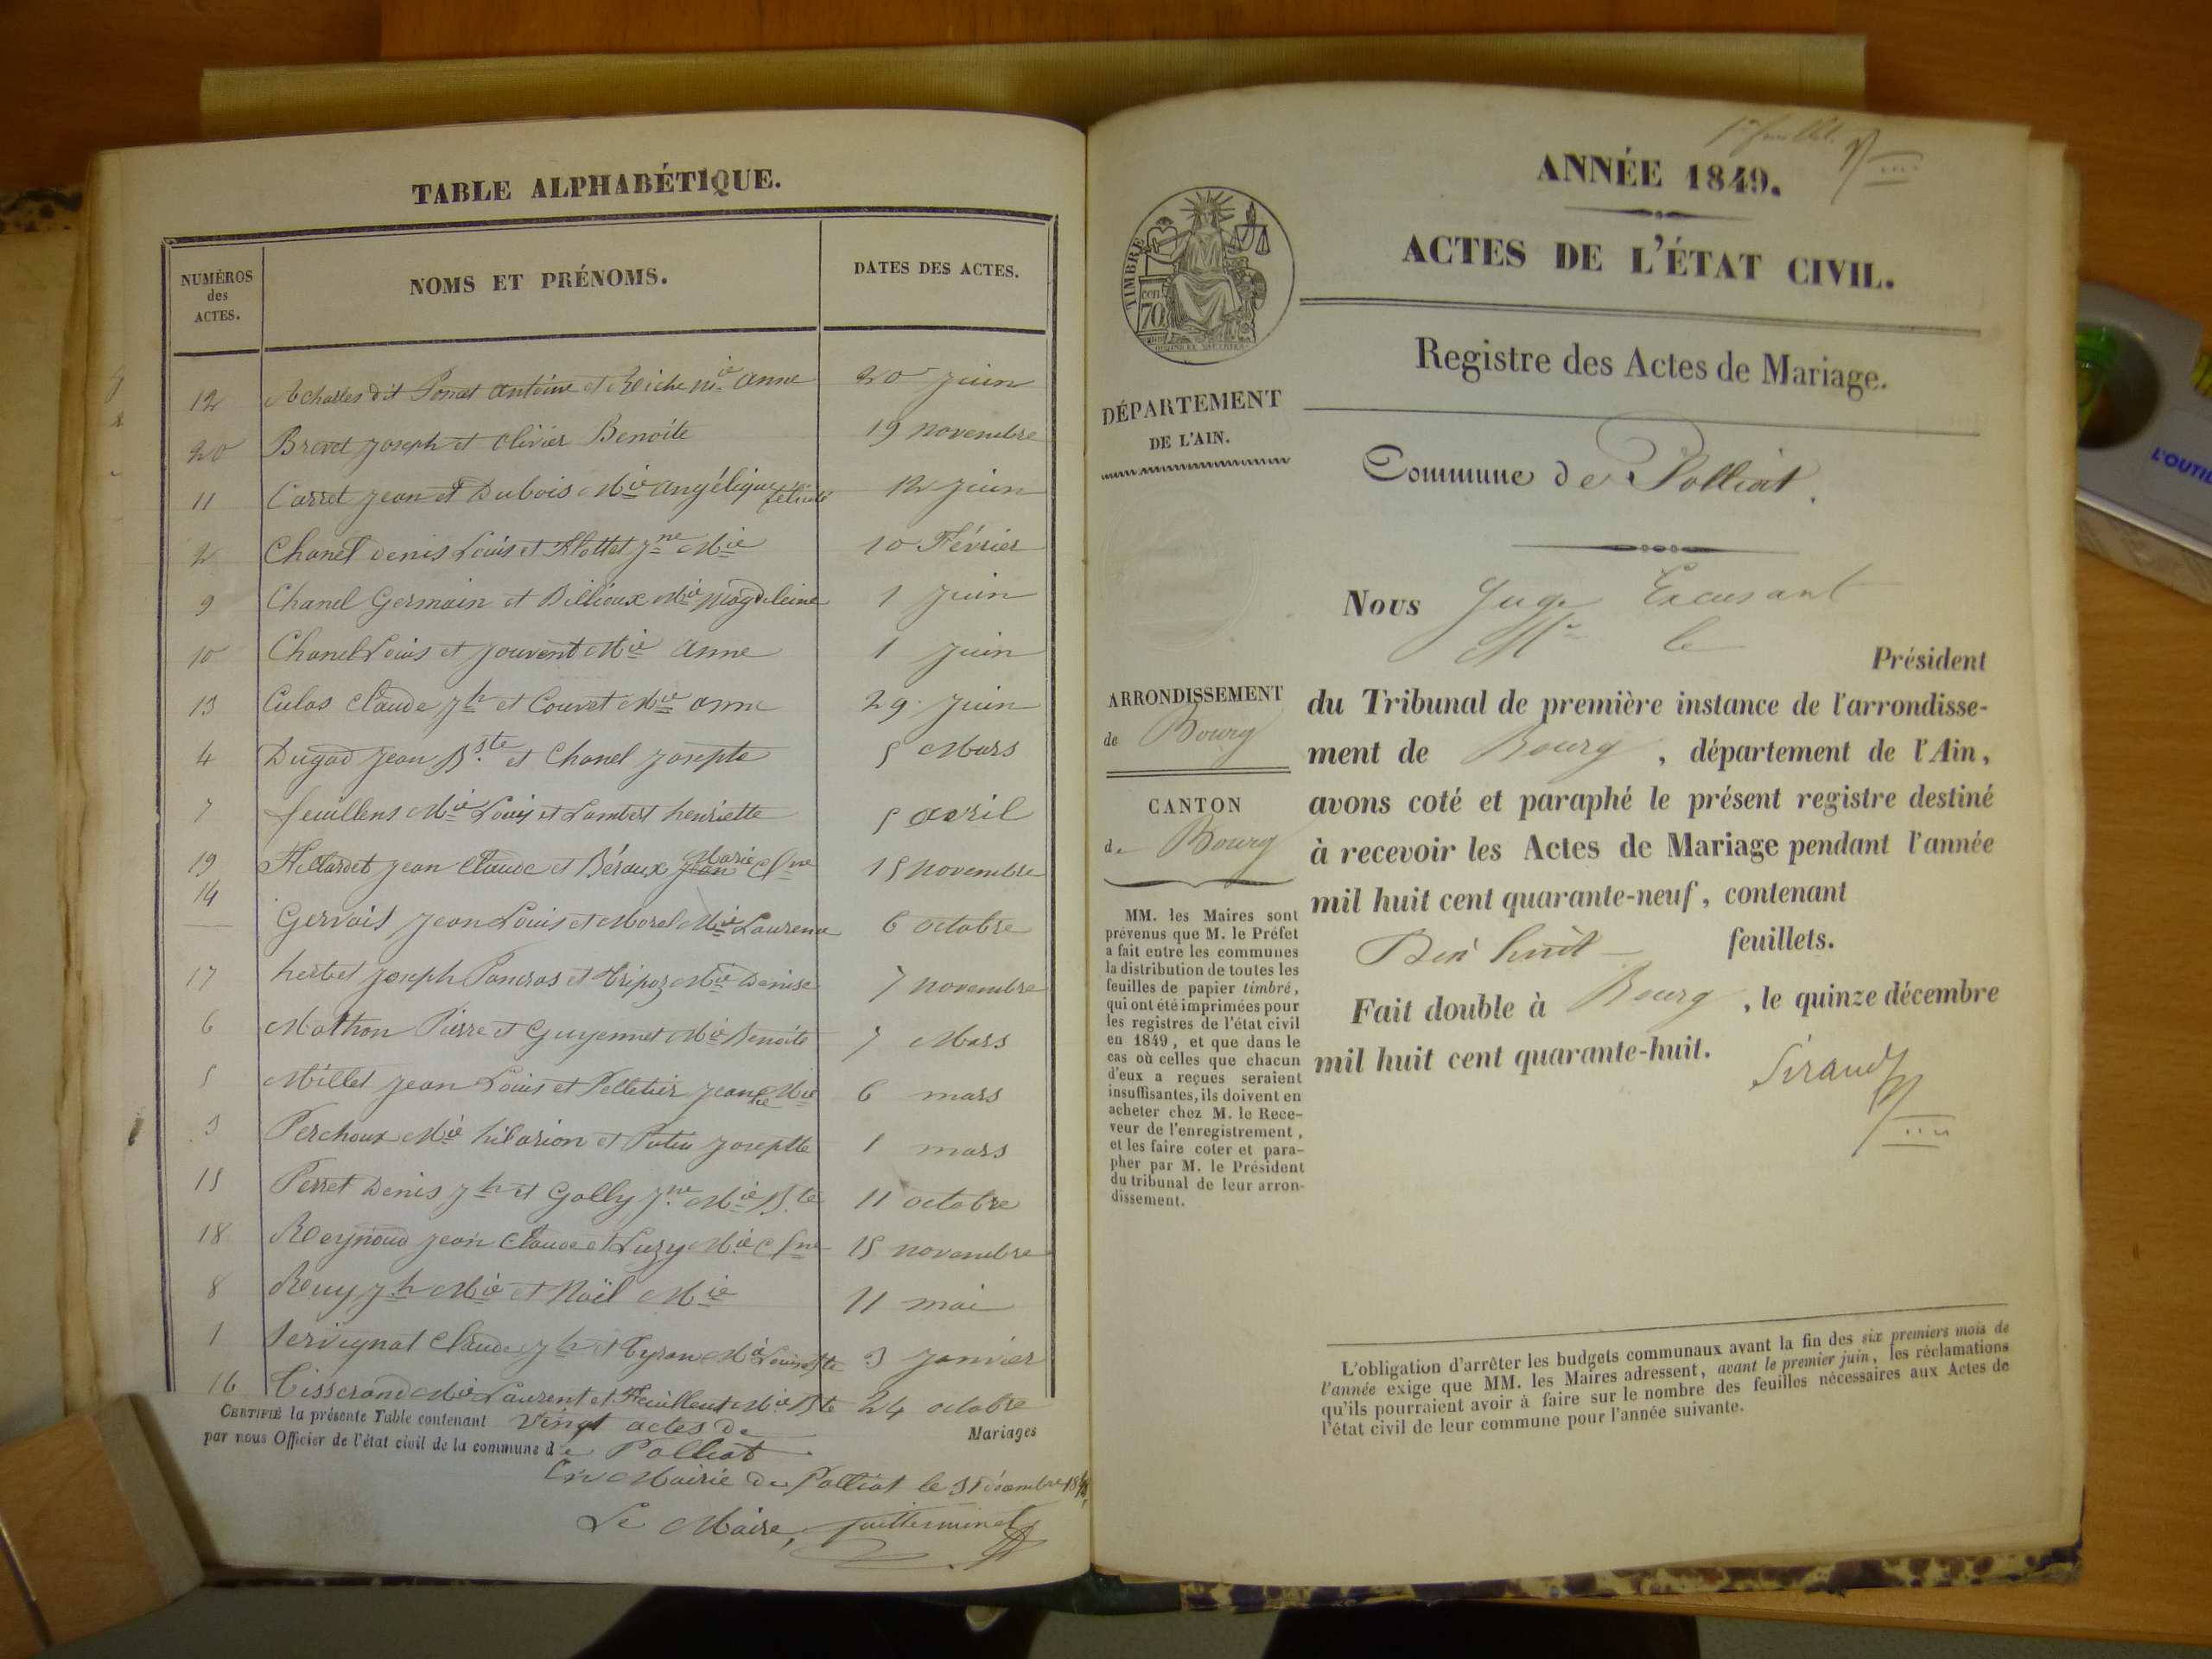 TABLE ALPHABÉTIQUE.
NUMÉROS
des
ACTES.
NOMS ET PRÉNOMS.
DATES DES ACTES.
12 Acharles dit Ponat antoine et Reiche Mie anne 20 juin
20 Brevet joseph et olivier Benoite 19 novembre
11 Carret jean et Dubois Mie angélique 12 juin
2 Chanel denis Louis et Flottet jne Mie 10 Février
9 Chanel Germain et Billioux Mie Magdeleine 1 juin
10 Chanel Louis et jouvent Mie anne 1 juin
13 Culas Claude jh et Couvet Mie anne 29 juin
4 Dugad jean Bste et Chanel josepte 5 Mars
7 feuillens Mie Louis et Lambert henriette 5 avril
19 Fillardet jean Claude et Béraux Marie Clne 15 novembre
14 Gervais jean Louis et Morel Mie Laurence 6 octobre
17 herbet joseph Pancras et Tripoz Mie Denise 7 novembre
6 Mathon Pierre et Guyennet Mie Benoite 7 Mars
5 Millet jean Louis et Pelletier Mie 6 mars
3 Perchoux Mie hilarion et josepte 1 mars
15 Perret Denis jh et Golly jne Mie Bte 11 octobre
18 Reynoud jean Claude et Luzy Mie Clne 15 novembre
8 Reuy jh Mie et Noël Mie 11 mai
1 Servignat Claude jh et Tyran Mie Louise 3 janvier
16 Tisserand Mie Laurent et Feuillent Mie Bte 24 octobre
CERTIFIÉ la présente Table contenant vingt actes de Mariages
par nous Officier de l'état civil de la commune de Polliat
En Mairie de Polliat le 31 décembre
Le Maire, Guillerminet
1er feuillet.
ANNÉE 1849.
ACTES DE L'ÉTAT CIVIL.
TIMBRE
70
Registre des Actes de Mariage.
DÉPARTEMENT
DE L'AIN.
Commune de Polliat.
ARRONDISSEMENT
de Bourg
CANTON
de Bourg
MM. les Maires sont
prévenus que M. le Préfet
a fait entre les communes
la distribution de toutes les
feuilles de papier timbré,
qui ont été imprimées pour
les registres de l'état civil
en 1849, et que dans le
cas où celles que chacun
d'eux a reçues seraient
insuffisantes, ils doivent en
acheter chez M. le Rece-
veur de l'enregistrement,
et les faire coter et para-
pher par M. le Président
du tribunal de leur arron-
dissement.
Nous Juge Excusant
Mr le
Président
du Tribunal de première instance de l'arrondisse-
ment de Bourg, département de l'Ain,
avons coté et paraphé le présent registre destiné
à recevoir les Actes de Mariage pendant l'année
mil huit cent quarante-neuf, contenant
Dix huit feuillets.
Fait double à Bourg, le quinze décembre
mil huit cent quarante-huit.
Sirand
L'obligation d'arrêter les budgets communaux avant la fin des six premiers mois de
l'année exige que MM. les Maires adressent, avant le premier juin, les réclamations
qu'ils pourraient avoir à faire sur le nombre des feuilles nécessaires aux Actes de
l'état civil de leur commune pour l'année suivante.
L'OUTIL